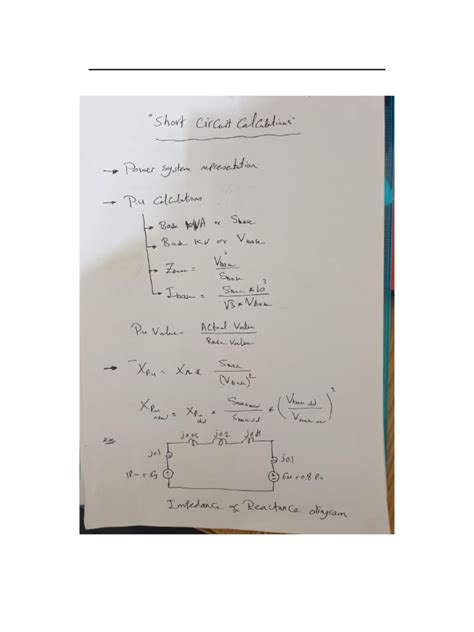 "Short Circuit Calculations"
→ Power System representation
→ P.U Calculations
→ Base MVA or Sbase
→ Base KV or Vbase
→ Zbase = Vbase² / Sbase
→ Ibase = Sbase * 10³ / √3 * Vbase
P.U Value = Actual Value / Base Value
→ Xp.u = XΩ * Sbase / (Vbase)²
Xp.u new = Xp.u old * Sbase new / Sbase old * (Vbase old / Vbase new)²
j0.2
j0.1
j0.1
1 P.u = Eg
Em = 0.8 P.u
Impedance or Reactance diagram